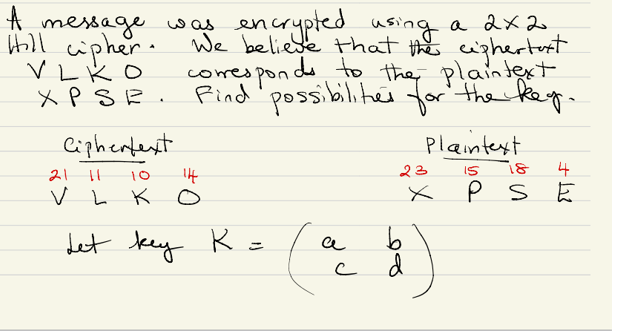 A message was encrypted using a 2x2
Hill cipher. We believe that the ciphertext
V L K O corresponds to the plaintext
X P S E. Find possibilities for the key.
Ciphertext Plaintext
21 11 10 14 23 15 18 4
V L K O X P S E
Let key K = ( a b
c d )